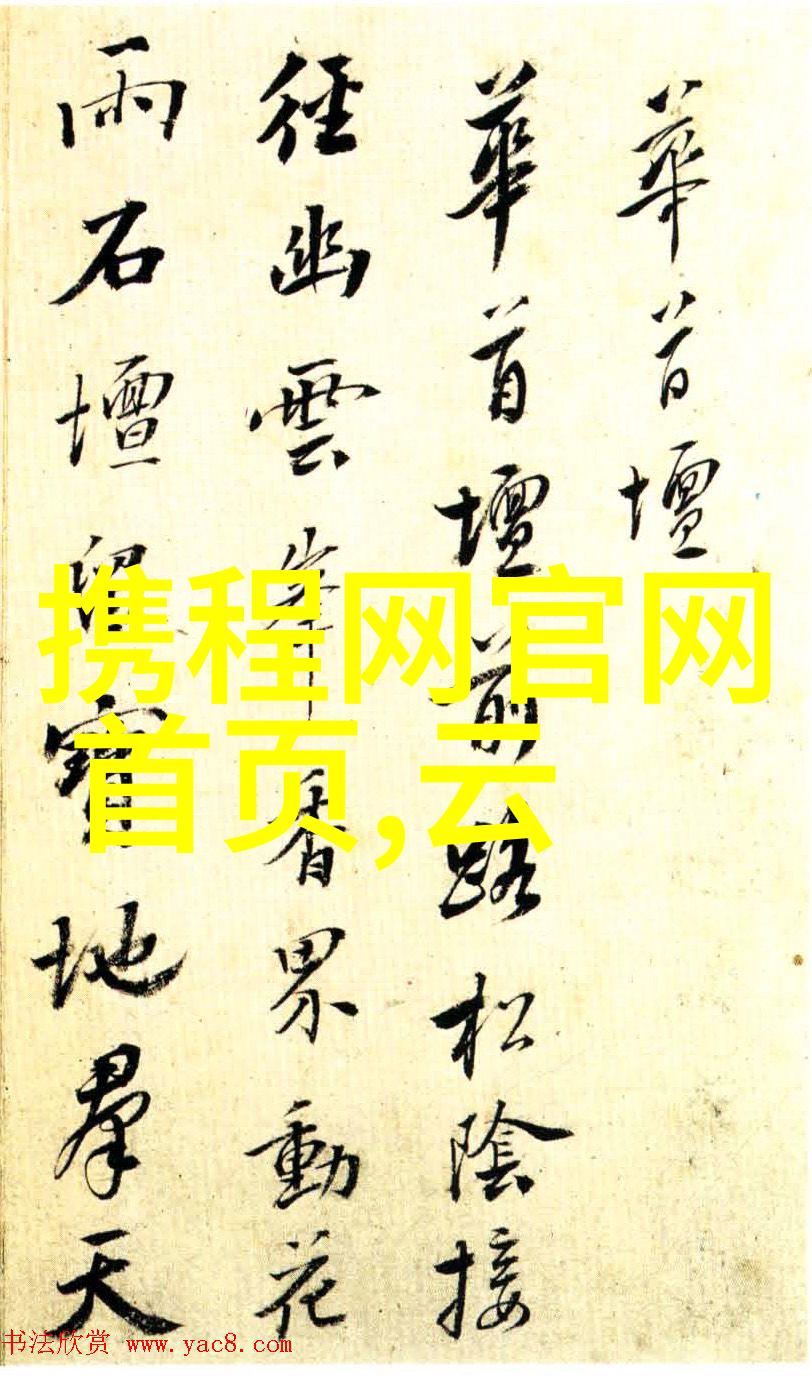 華首壇
華首壇前路松陰接
徑幽雲岸香界動花
雨石壇留寶地羣天
携程网官网
首页,云
书法欣赏 www.yac8.com